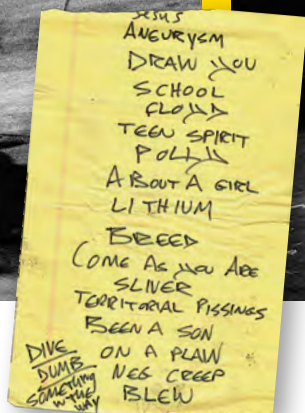 JESUS
ANEURYSM
DRAW YOU
SCHOOL
FLOYD
TEEN SPIRIT
POLLY
ABOUT A GIRL
LITHIUM
BREED
COME AS YOU ARE
SLIVER
TERRITORIAL PISSINGS
BEEN A SON
ON A PLAIN
NEG CREEP
BLEW
DIVE
DUMB
SOMETHING
IN THE
WAY